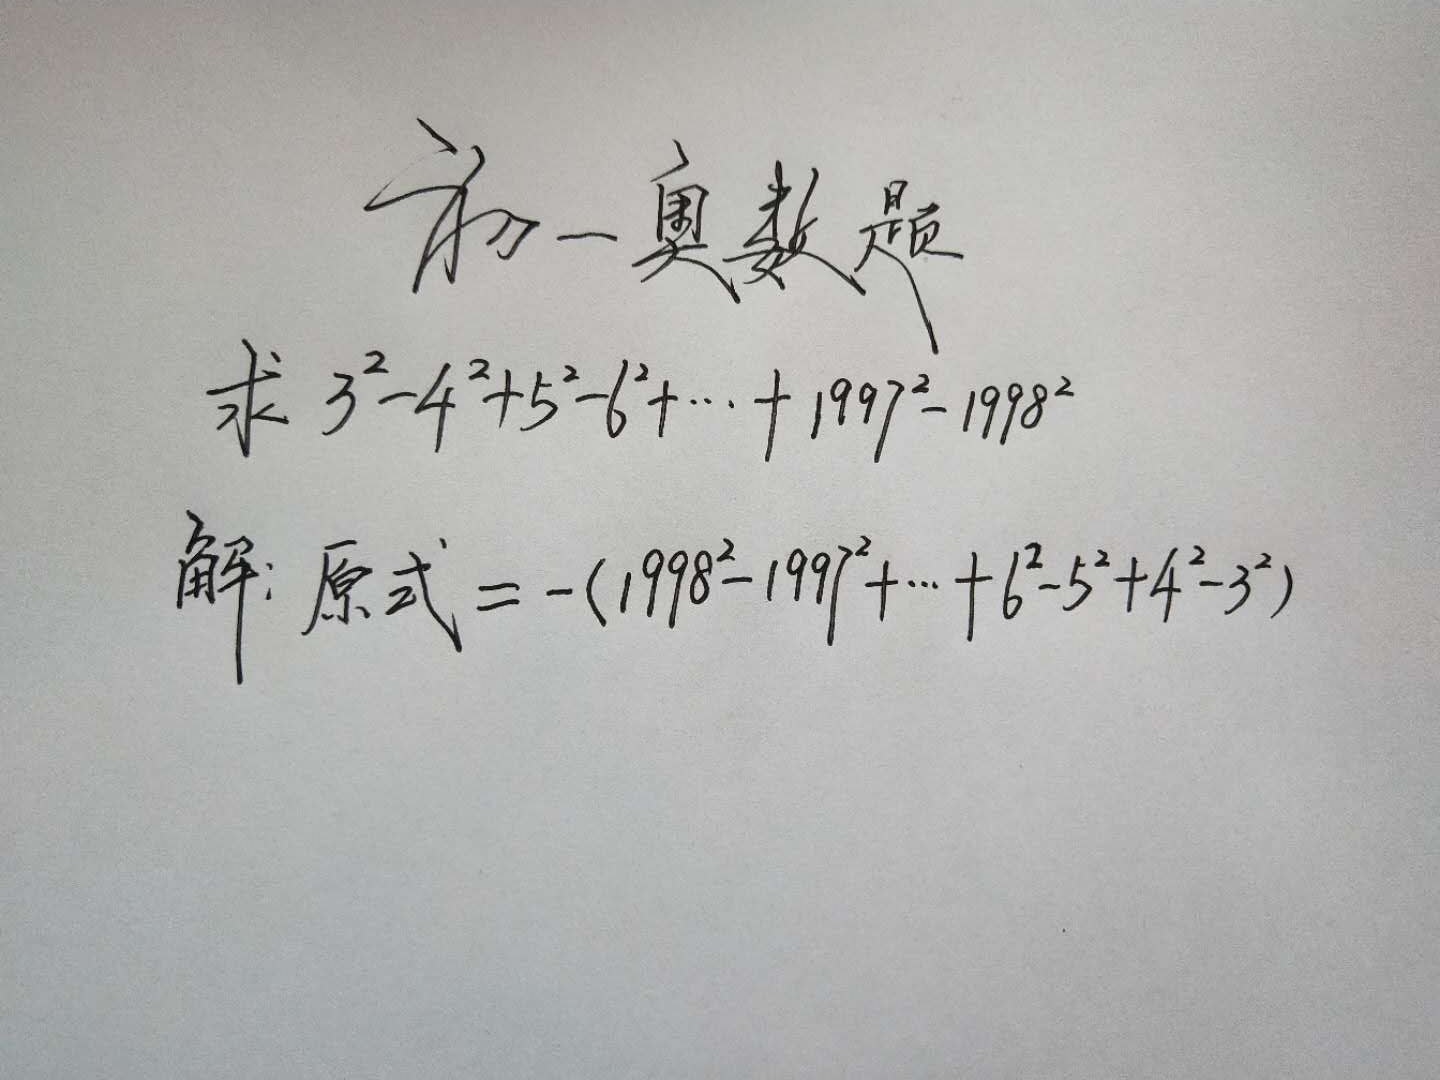 初一奥数题
求 3²-4²+5²-6²+…+1997²-1998²
解:原式=-(1998²-1997²+…+6²-5²+4²-3²)